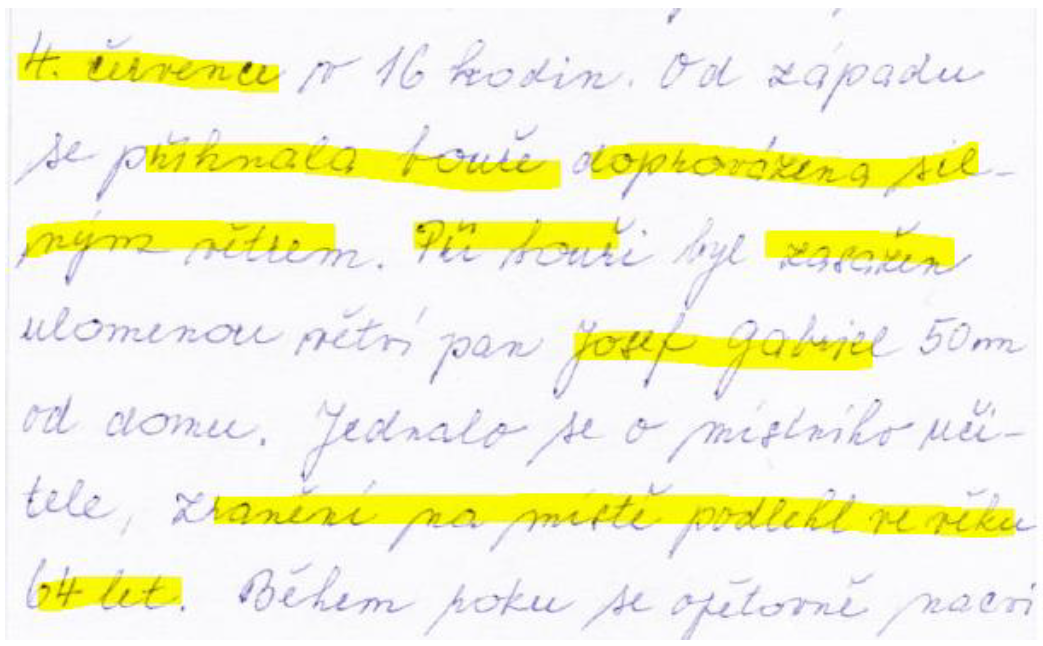 4. července v 16 hodin. Od západu
se přihnala bouře doprovázena sil-
ným větrem. Při bouři byl zasažen
ulomenou větví pan Josef Gabriel 50m
od domu. Jednalo se o místního uči-
tele, zranění na místě podlehl ve věku
64 let. Během roku se opětovně